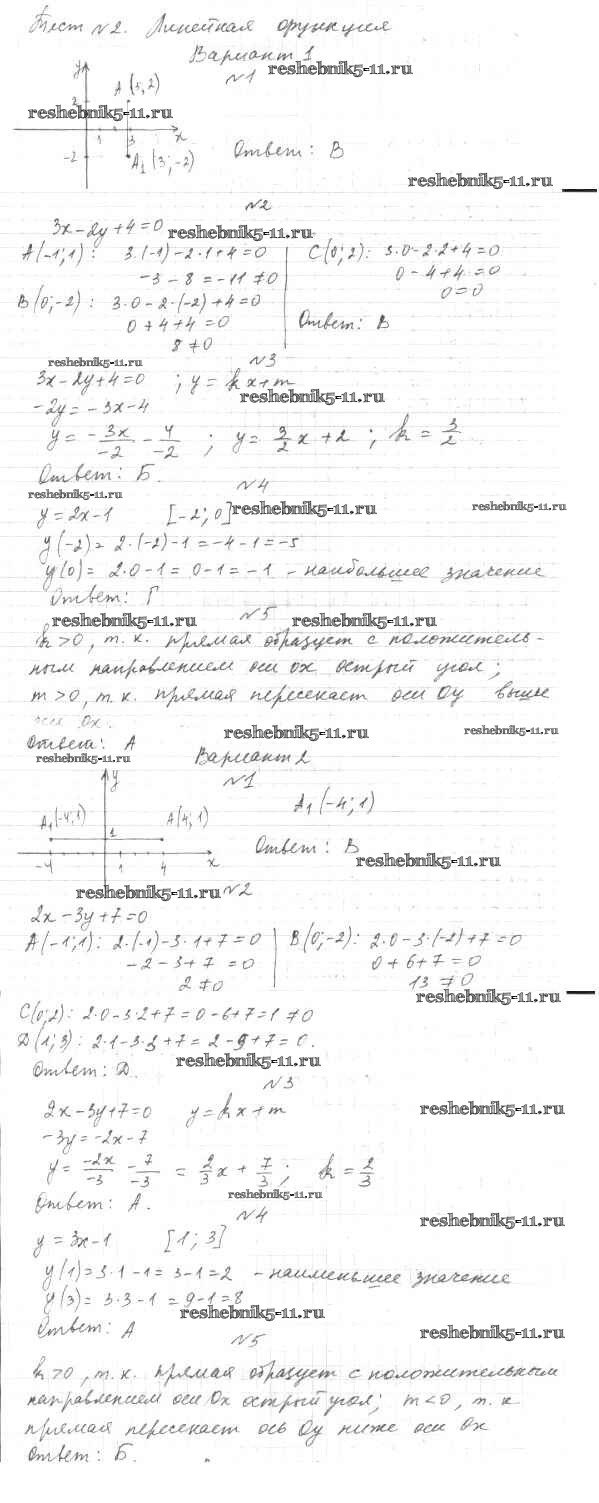 Тест №2. Линейная функция
Вариант 1
№1
reshebnik5-11.ru
y
A (5, 2)
reshebnik5-11.ru
2
1 3 x
-2
A₁ (3; -2)
Ответ: В
reshebnik5-11.ru
№2
3x - 2y + 4 = 0
reshebnik5-11.ru
A(-1; 1): 3·(-1) - 2·1 + 4 = 0
-3 - 8 = -11 ≠ 0
B(0; -2): 3·0 - 2·(-2) + 4 = 0
0 + 4 + 4 = 0
8 ≠ 0
C(0; 2): 3·0 - 2·2 + 4 = 0
0 - 4 + 4 = 0
0 = 0
Ответ: В
reshebnik5-11.ru
№3
3x - 2y + 4 = 0 ; y = kx + m
reshebnik5-11.ru
-2y = -3x - 4
y = -3x/-2 - 4/-2 ; y = 3/2 x + 2 ; k = 3/2
Ответ: Б.
№4
reshebnik5-11.ru
y = 2x - 1 [-2; 0]
reshebnik5-11.ru
reshebnik5-11.ru
y(-2) = 2·(-2) - 1 = -4 - 1 = -5
y(0) = 2·0 - 1 = 0 - 1 = -1 - наибольшее значение
Ответ: Г
№5
reshebnik5-11.ru
reshebnik5-11.ru
k > 0, т. к. прямая образует с положитель-
ным направлением оси ox острый угол;
m > 0, т. к. прямая пересекает оси Oy выше
оси Ox.
reshebnik5-11.ru
reshebnik5-11.ru
Ответа: А
reshebnik5-11.ru
Вариант 2
№1
y
A₁(-4; 1)
A(4; 1)
1
-4 1 4 x
A₁(-4; 1)
Ответ: В
reshebnik5-11.ru
reshebnik5-11.ru
№2
2x - 3y + 7 = 0
A(-1; 1): 2·(-1) - 3·1 + 7 = 0
-2 - 3 + 7 = 0
2 ≠ 0
B(0; -2): 2·0 - 3·(-2) + 7 = 0
0 + 6 + 7 = 0
13 ≠ 0
reshebnik5-11.ru
C(0; 2): 2·0 - 3·2 + 7 = 0 - 6 + 7 = 1 ≠ 0
D(1; 3): 2·1 - 3·3 + 7 = 2 - 9 + 7 = 0.
Ответ: D.
reshebnik5-11.ru
№3
2x - 3y + 7 = 0 y = kx + m
reshebnik5-11.ru
-3y = -2x - 7
y = -2x/-3 - 7/-3 = 2/3 x + 7/3 ; k = 2/3
reshebnik5-11.ru
Ответ: А.
№4
reshebnik5-11.ru
y = 3x - 1 [1; 3]
y(1) = 3·1 - 1 = 3 - 1 = 2 - наименьшее значение
y(3) = 3·3 - 1 = 9 - 1 = 8
reshebnik5-11.ru
Ответ: А
reshebnik5-11.ru
№5
k > 0, т. к. прямая образует с положительным
направлением оси Ox острый угол; m < 0, т. к
прямая пересекает ось Oy ниже оси Ox
Ответ: Б.